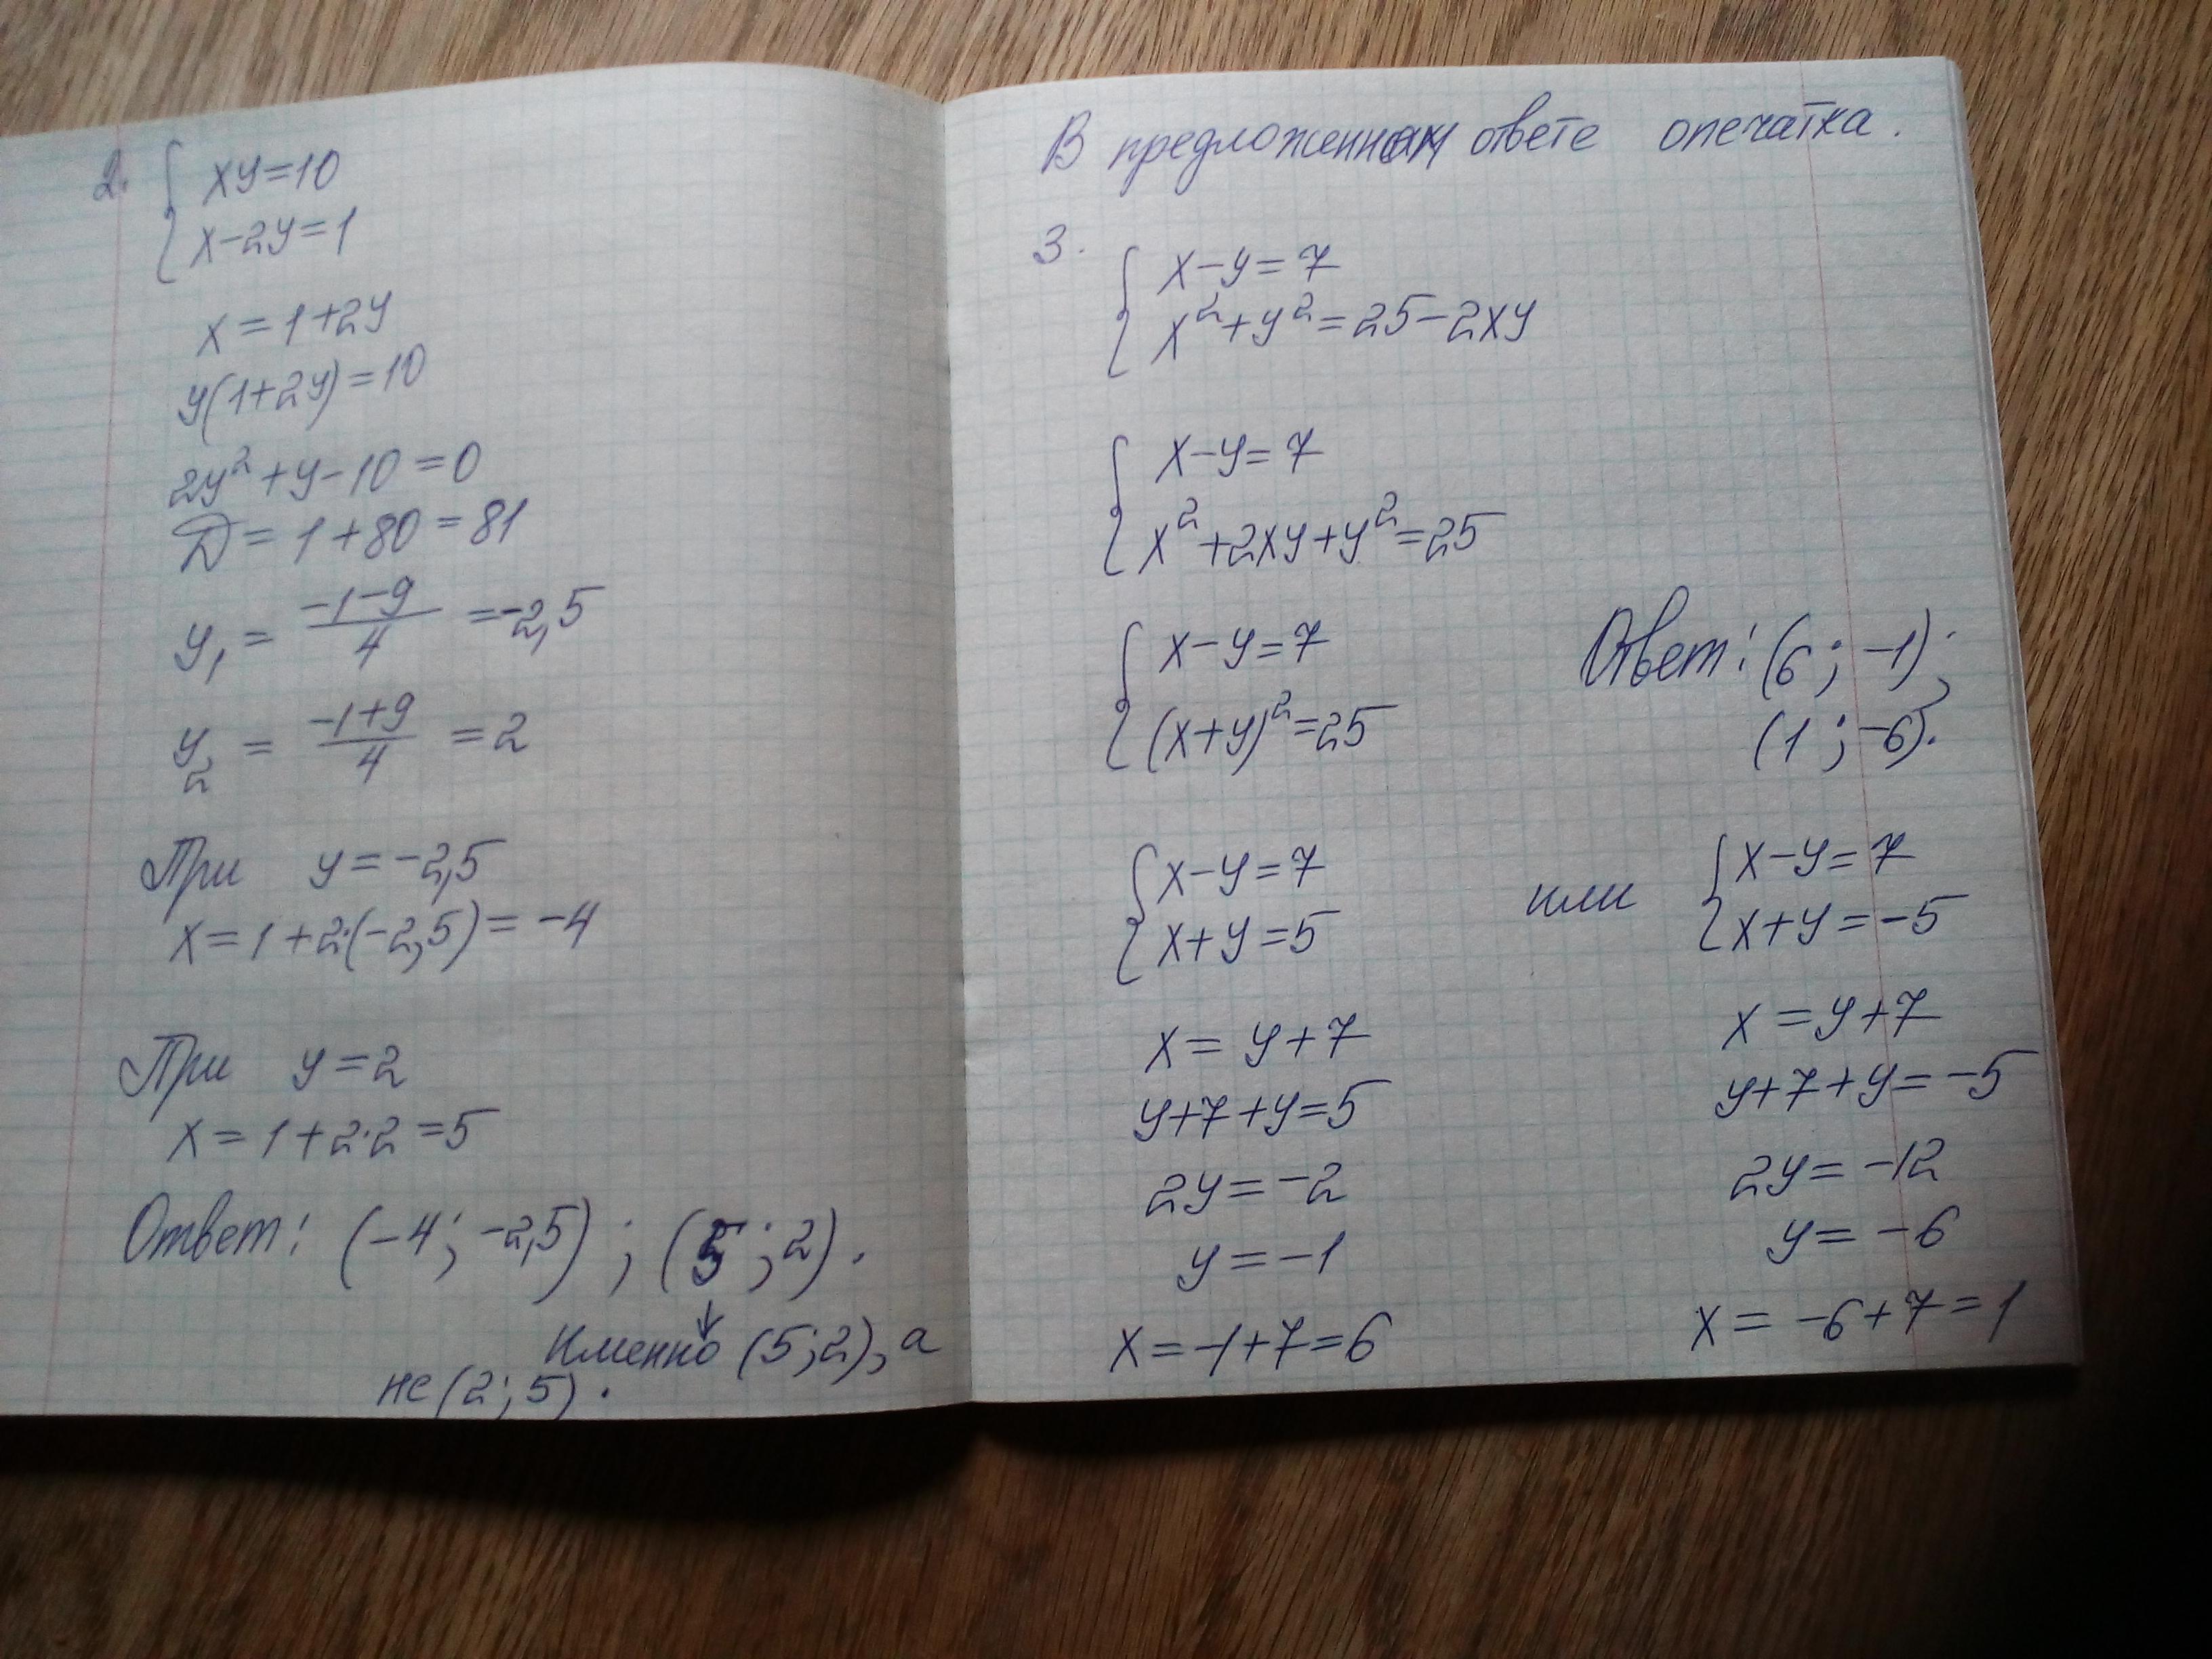 2. { xy=10
x-2y=1
x=1+2y
y(1+2y)=10
2y²+y-10=0
Д=1+80=81
y₁ = (-1-9)/4 = -2,5
y₂ = (-1+9)/4 = 2
При y=-2,5
x=1+2·(-2,5)=-4
При y=2
x=1+2·2=5
Ответ: (-4; -2,5); (5; 2).
↓
Именно (5;2), а
не (2; 5).
В предложенном ответе опечатка.
3. { x-y=7
x²+y²=25-2xy
{ x-y=7
x²+2xy+y²=25
{ x-y=7
(x+y)²=25
Ответ: (6; -1);
(1; -6).
{ x-y=7
x+y=5
x=y+7
y+7+y=5
2y=-2
y=-1
x=-1+7=6
или
{ x-y=7
x+y=-5
x=y+7
y+7+y=-5
2y=-12
y=-6
x=-6+7=1